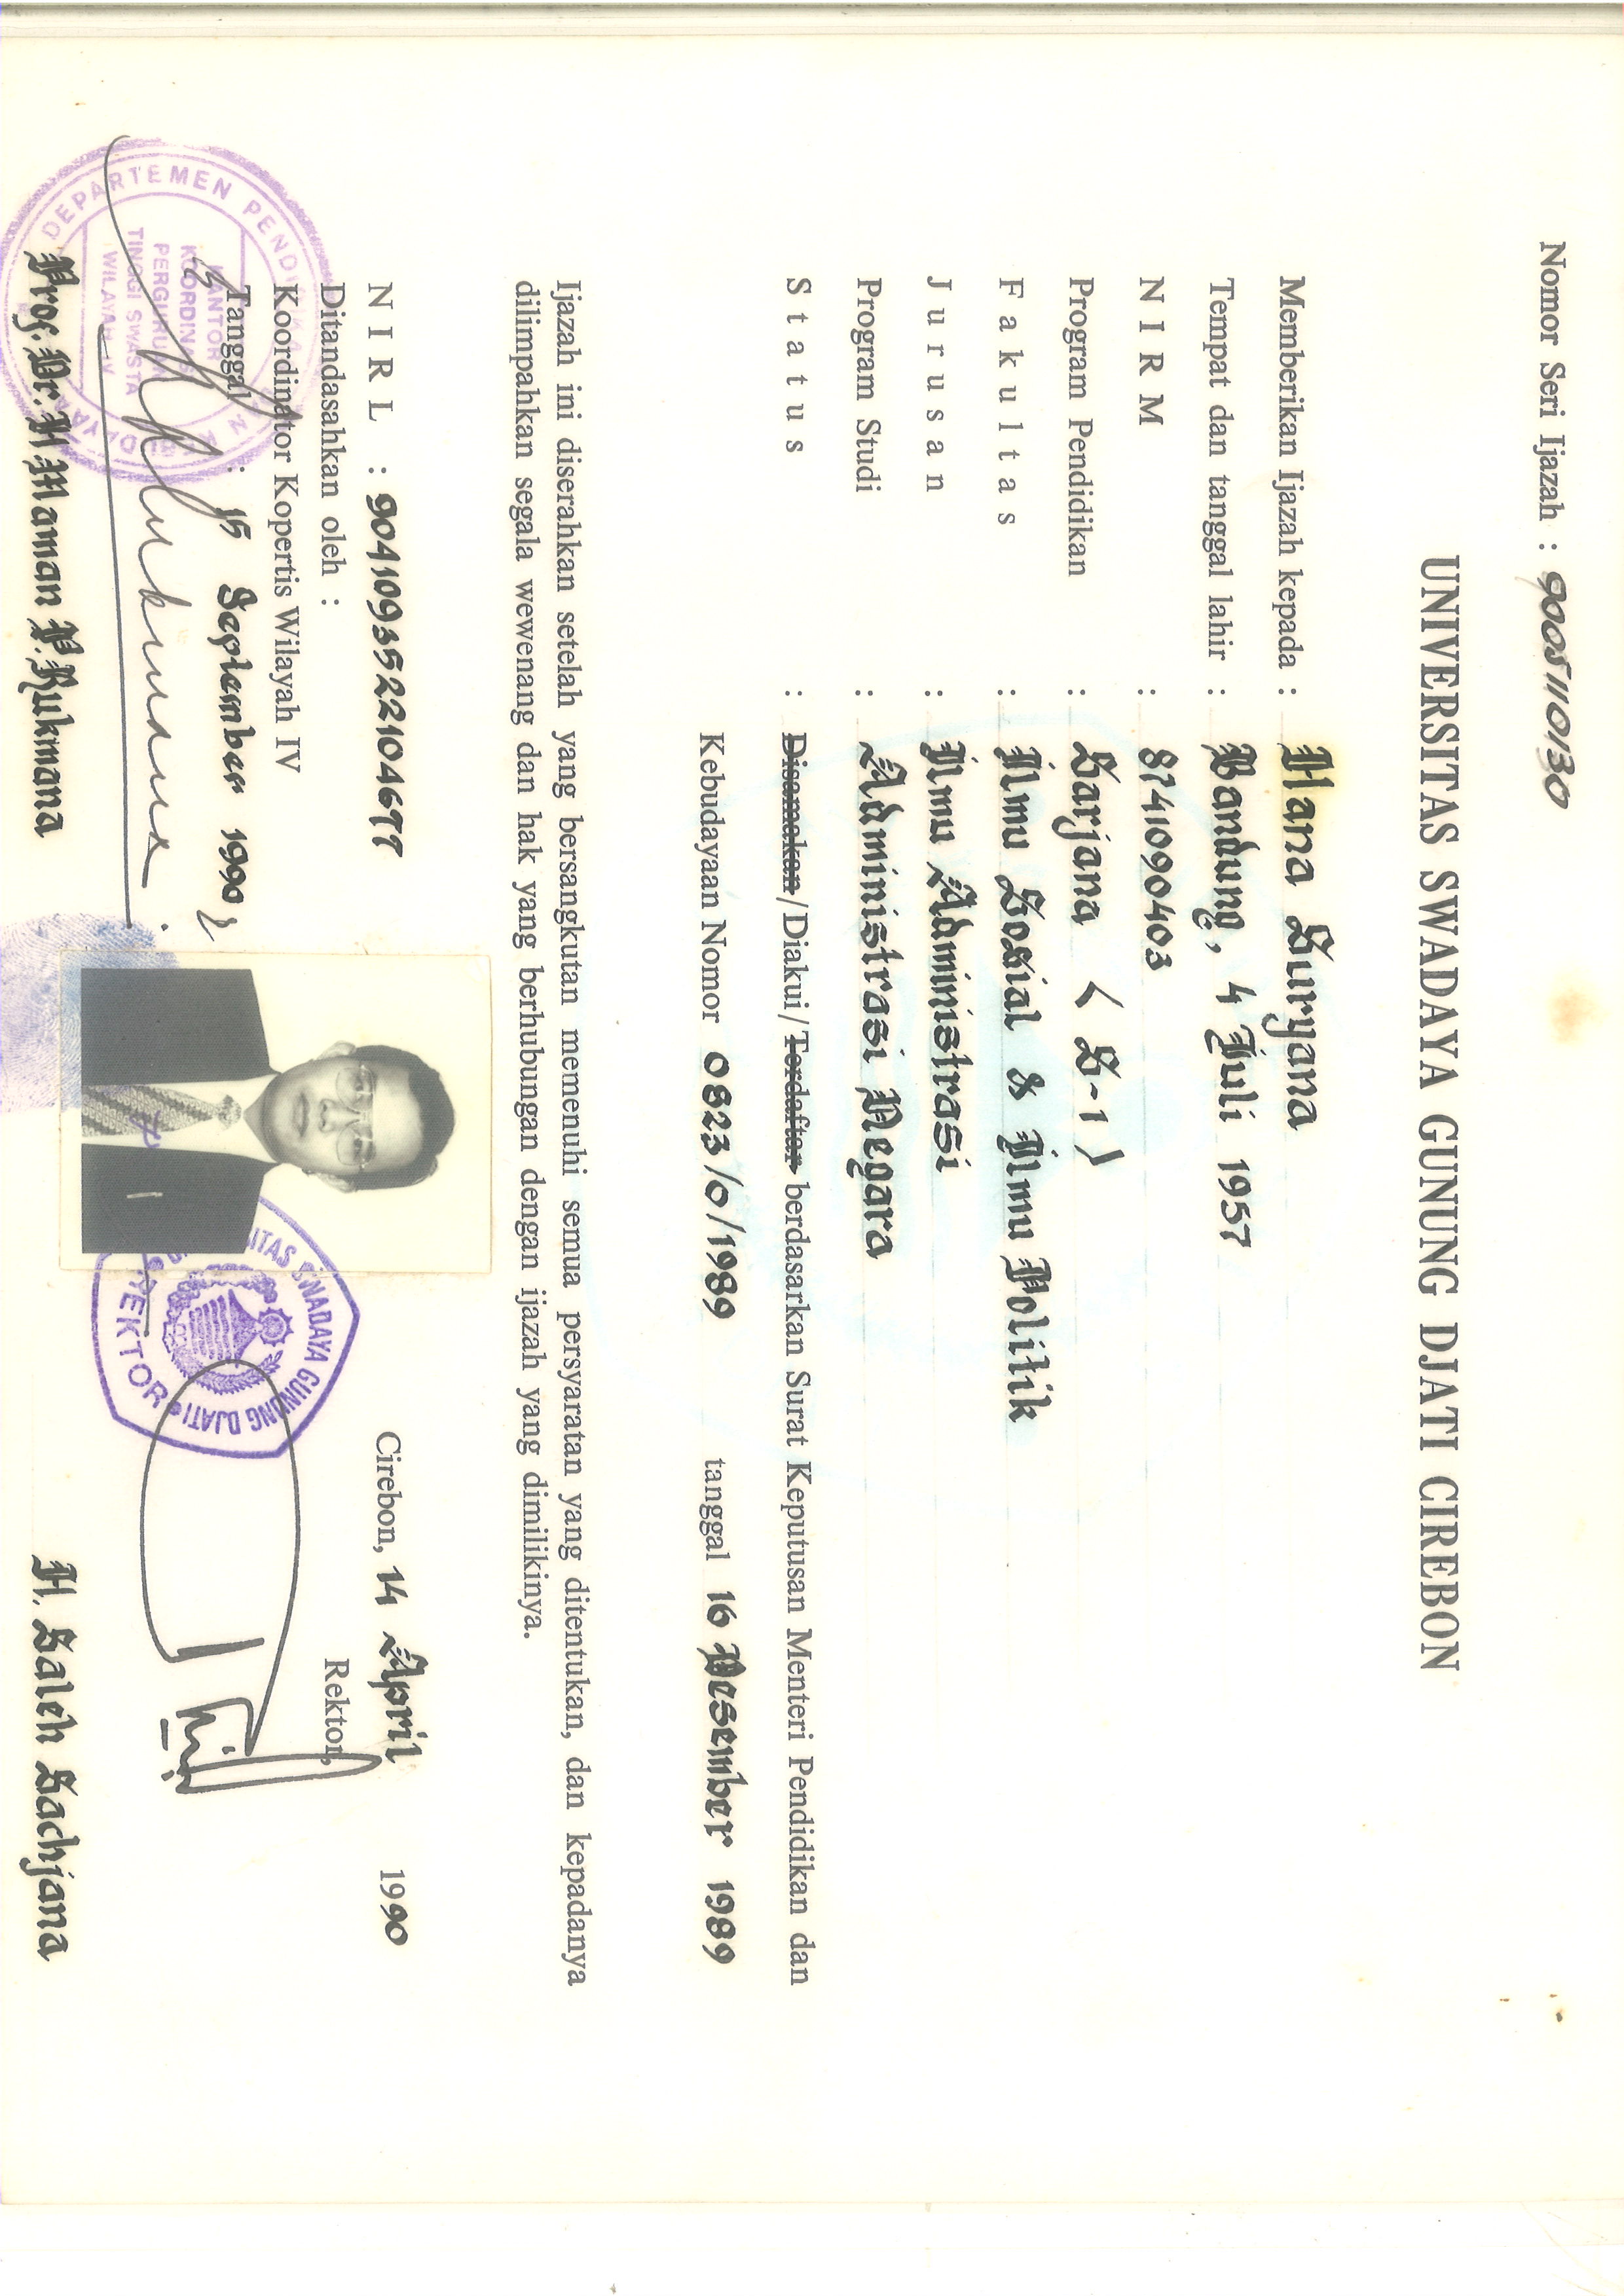 Nomor Seri Ijazah : 9005110130
UNIVERSITAS SWADAYA GUNUNG DJATI CIREBON
Memberikan Ijazah kepada : Hana Suryana
Tempat dan tanggal lahir : Bandung, 4 Juli 1957
NIRM : 8741090403
Program Pendidikan : Sarjana ( S-1 )
Fakultas : Ilmu Sosial & Ilmu Politik
Jurusan : Ilmu Administrasi
Program Studi : Administrasi Negara
Status : Disamakan/Diakui/Terdaftar berdasarkan Surat Keputusan Menteri Pendidikan dan
Kebudayaan Nomor 0823/0/1989 tanggal 16 Desember 1989
Ijazah ini diserahkan setelah yang bersangkutan memenuhi semua persyaratan yang ditentukan, dan kepadanya
dilimpahkan segala wewenang dan hak yang berhubungan dengan ijazah yang dimilikinya.
NIRL : 9041093522104677
Ditandasahkan oleh :
Koordinator Kopertis Wilayah IV
Tanggal : 15 September 1990
DEPARTEMEN PENDIDIKAN
KANTOR
KOORDINASI
PERGURUAN
TINGGI SWASTA
WILAYAH IV
Prof. Dr. H. Maman P. Rukmana
Cirebon, 14 April 1990
Rektor,
SWADAYA GUNUNG DJATI
REKTOR
H. Saleh Sachjana